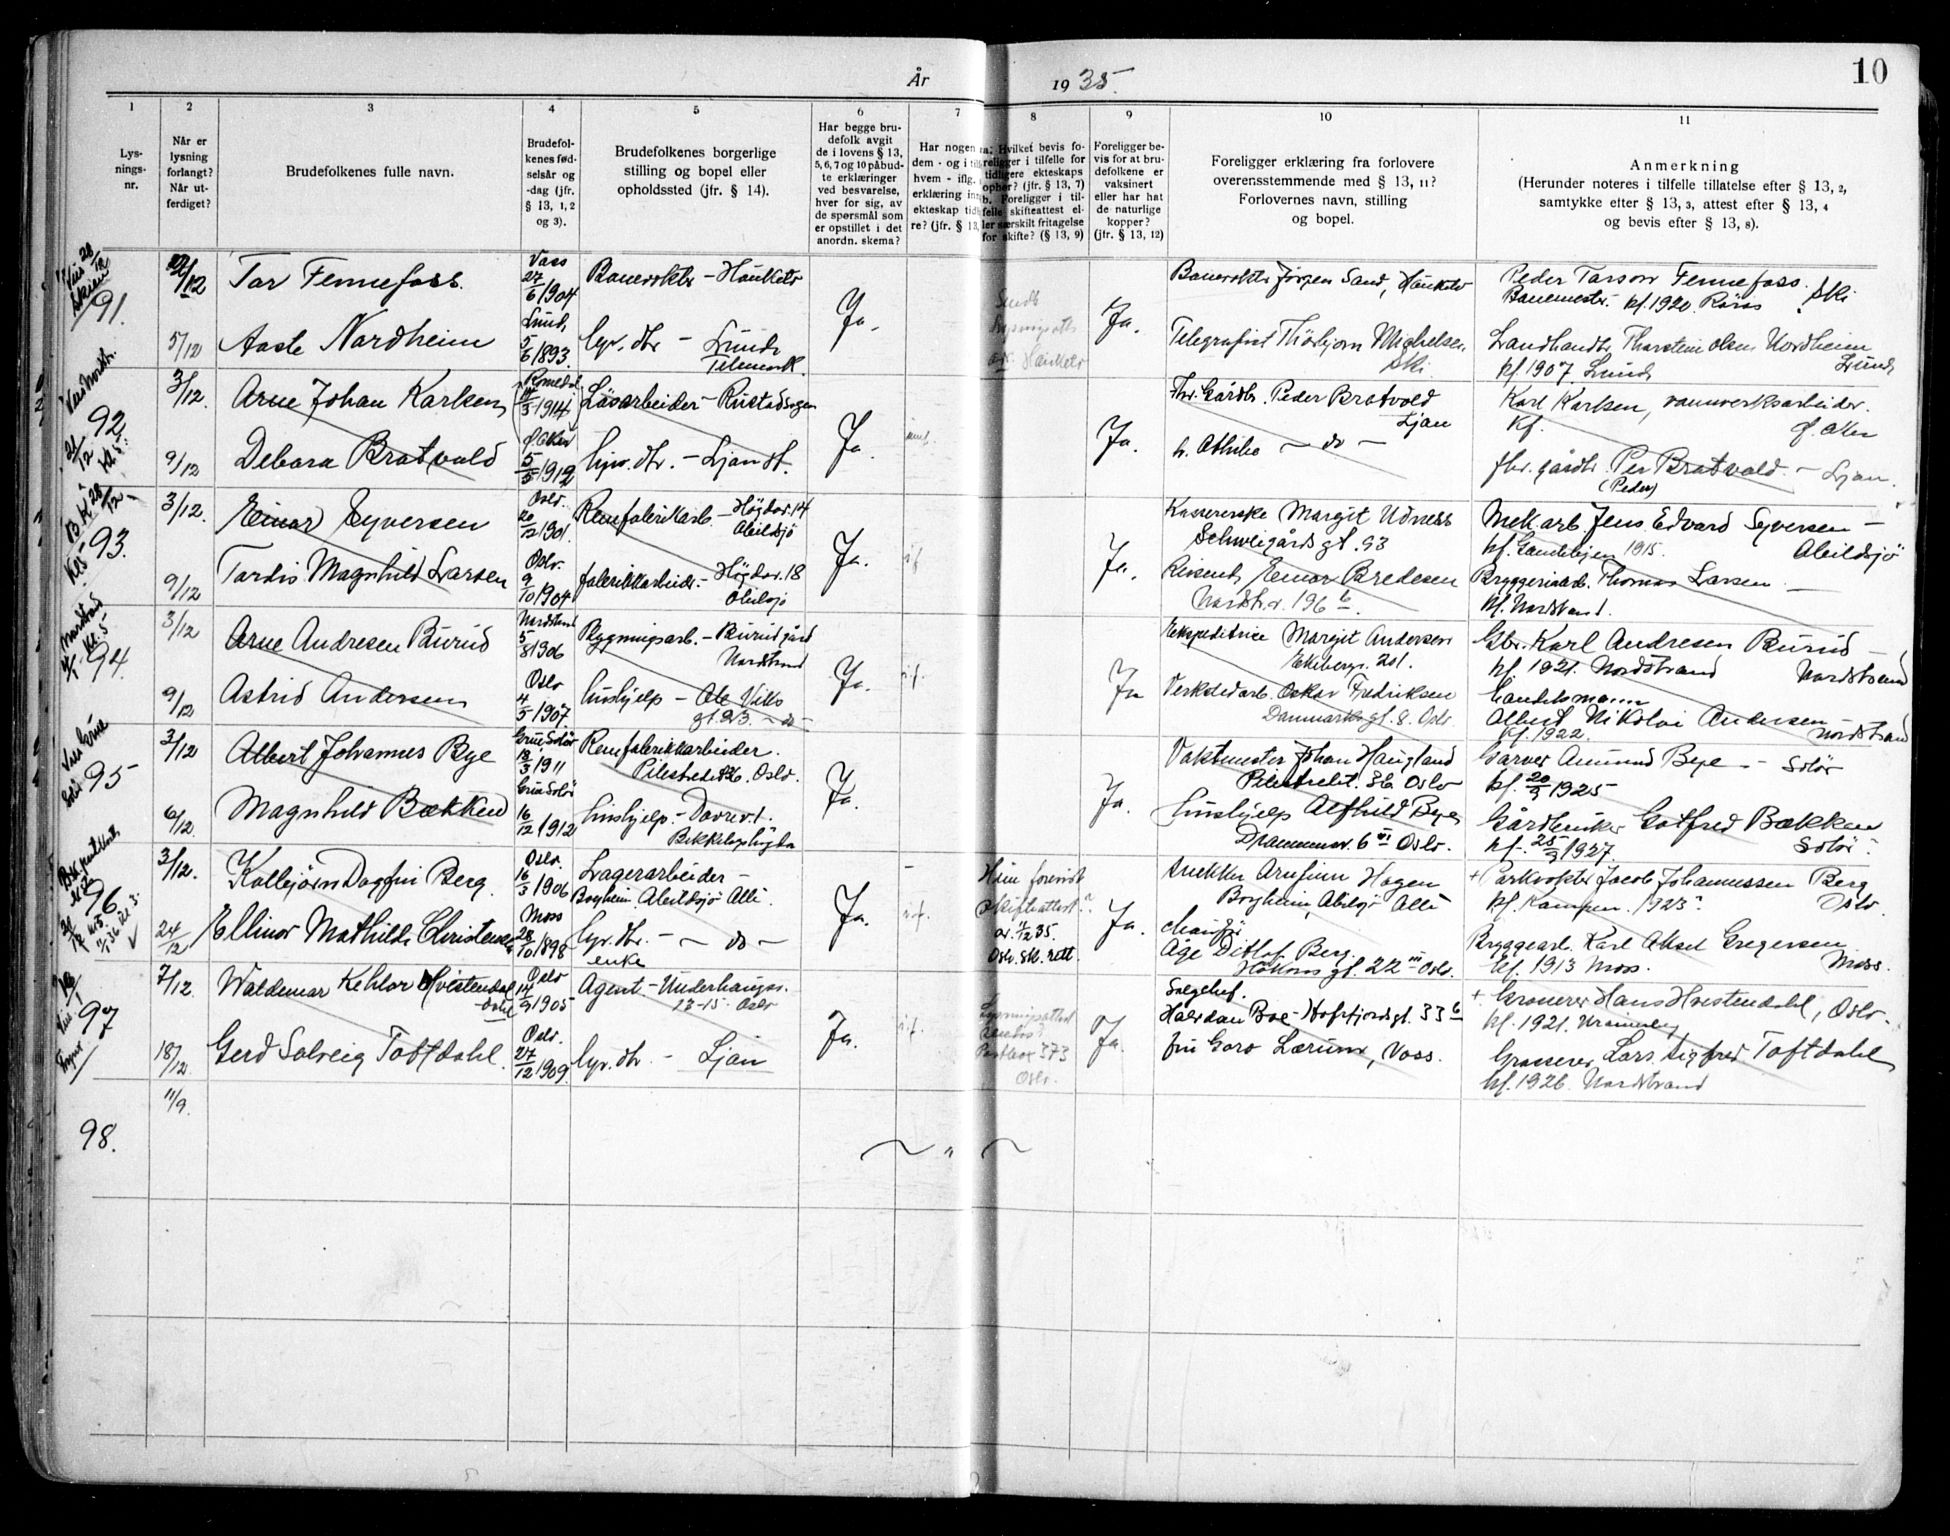 10
År 1935.
1
2
3
4
5
6
7
8
9
10
11
Lys-
nings-
nr.
Når er
lysning
forlangt?
Når ut-
ferdiget?
Brudefolkenes fulle navn.
Brudefol-
kenes fød-
selsår og
-dag (jfr.
§ 13, 1, 2
og 3).
Brudefolkenes borgerlige
stilling og bopel eller
opholdssted (jfr. § 14).
Har begge bru-
defolk avgit
de i lovens § 13,
5, 6, 7 og 10 påbud-
te erklæringer
ved besvarelse,
hver for sig, av
de spørsmål som
er opstillet i det
anordn. skema?
Har nogen
dem - og i
hvem - iflg.
erklæring in
ekteskap tid
re? (jfr. § 13,
Hvilket bevis fo-
religger i tilfelle for
tidligere ekteskaps
ophør? (jfr. § 13, 7)
b. Foreligger i til-
felle skifteattest el-
ler særskilt fritagelse
for skifte? (§ 13, 9)
Foreligger be-
vis for at bru-
defolkene er
vaksinert
eller har hat
de naturlige
kopper?
(jfr. § 13, 12)
Foreligger erklæring fra forlovere
overensstemmende med § 13, 11?
Forlovernes navn, stilling
og bopel.
Anmerkning
(Herunder noteres i tilfelle tillatelse efter § 13, 2,
samtykke efter § 13, 3, attest efter § 13, 4
og bevis efter § 13, 8).
91.
/12
Tor Fennefoss.
Voss
27/6 1904
Banevokter - Hauketo
Ja.
Ja.
Banevokter Jörgen Sand, Hauketo
Peder Tarson Fennefoss.
Ski
Banemester. kf. 1920 Röros
5/12
Aaste Nordheim
Lunde
5/6 1893.
hjv. dtr - Lunde
Telemark.
Telegrafist Thorbjorn Mighelsen
Ski
Landhandler Tharstein Olsen Nordheim
kf. 1907 Lunde
Lunde
92
3/12.
Arne Johan Karlsen
Romedal
/3 1914
Lösarbeider - Rustadsagen
Ja.
Ja.
Fhv. Gårdbr. Peder Bratvold
Ljan
Karl Karlsen, vannverksarbeider.
kf. Ø. Aker
9/12
Debora Bratvold
Ø. Aker
5/5 1912
hjv. dtr. - Ljan st.
- do -
fhv. gårdbr. Per Bratvold - Ljan.
(Peder)
93.
3/12.
Einar Syversen
Oslo.
20/12 1901.
Remfabrikarb. - Högdav. 14
Abildsjö
Ja.
Ja.
Kassererske Margit Udness
Schweigårds gt. 93
Mek. arb. Jens Edvard Syversen -
kf. Gamlebyen 1915. Abildsjö
9/12
Tordis Magnhild Larsen
Oslo.
9/10 1904
fabrikkarbeider - Högdav. 18
Abildsjö
Einar Bredesen
Nordstr. v. 196 b.
Bryggeriarb. Thomas Larsen -
kf. Nordstrand.
94.
3/12
Arne Andresen Burud
Nordstrand
5/8 1906
Bygningsarb. - Burud gård
Nordstrand
Ja.
Ja
Ekspeditrice Margit Andersen
Ekebergv. 201.
Gbr. Karl Andresen Burud -
kf. 1921. Nordstrand Nordstrand
9/12
Astrid Andersen
Oslo
4/5 1907.
hushjelp - Ole Viks
gt. 23. - do -
Verkstedarb. Oskar Fredriksen
Danmarks gt. 8. Oslo.
Handelsmann
Albert Nikolai Andersen -
kf. 1922. Nordstrand
95
3/12
Albert Johannes Bye
Grue Solör
/3 1911
Remfabrikkarbeider.
Pilestredet 36. Oslo.
Ja.
Ja.
Vaktmester Johan Haugland
Pilestredet. 36 Oslo
Garver Amund Bye - Solör
kf. 20/9 1925
6/12.
Magnhild Bækken
Grue Solör
16/12 1912
hushjelp. - Dovrev. 1.
Bekkelagshögda
Hushjelp Alfhild Bye
Drammensv. 6 III Oslo.
Gårdbruker Gotfred Bækken
kf. 25/9 1927. Solör.
96.
3/12.
Kolbjörn Dagfin Berg.
Oslo.
16/3 1906
Lagerarbeider -
Borgheim. Abildsjö Alle.
Ja.
skifteattest
av. 11/12 35.
Oslo. sk. rett
Ja.
Snekker Arnfinn Hagen
Borgheim, Abilsjö Alle
+ Parkvokter Jacob Johannessen Berg
kf. Kampen. 1923. Oslo.
24/12
Ellinor Mathilde Christensen
Moss
28/10 1898
hjv. dtr. - do -
enke
Åge Ditlof Berg.
Håkons gt. 22 III Oslo.
Bryggearb. Karl Aksel Gregersen
kf. 1913 Moss. Moss.
97
7/12.
Waldemar Kehlor Hvistendal
Oslo
14/9 1905
Agent - Underhaugsv.
13-15. Oslo
Ja.
Lysningsattest
Postbox 373
Oslo.
Ja.
Salgschef.
Halvdan Boe - Hafrsfjordsgt. 33 b
+ Grosserer Hans Hvistendahl, Oslo.
kf. 1921. Uranienborg
18/12
Gerd Solveig Toftdahl.
Oslo.
27/12 1909
hjv. dtr. - Ljan
fru Goro Lærum, Voss.
Grosserer Lars Sigfred Toftdahl
kf. 1926. Nordstrand
98.
11/9.